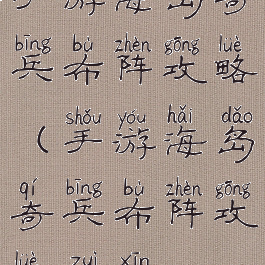 手游海岛奇
bīng bù zhèn gōng lüè
兵布阵攻略
shǒu yóu hǎi dǎo
(手游海岛
qí bīng bù zhèn gōng
奇兵布阵攻
lüè zuì xīn